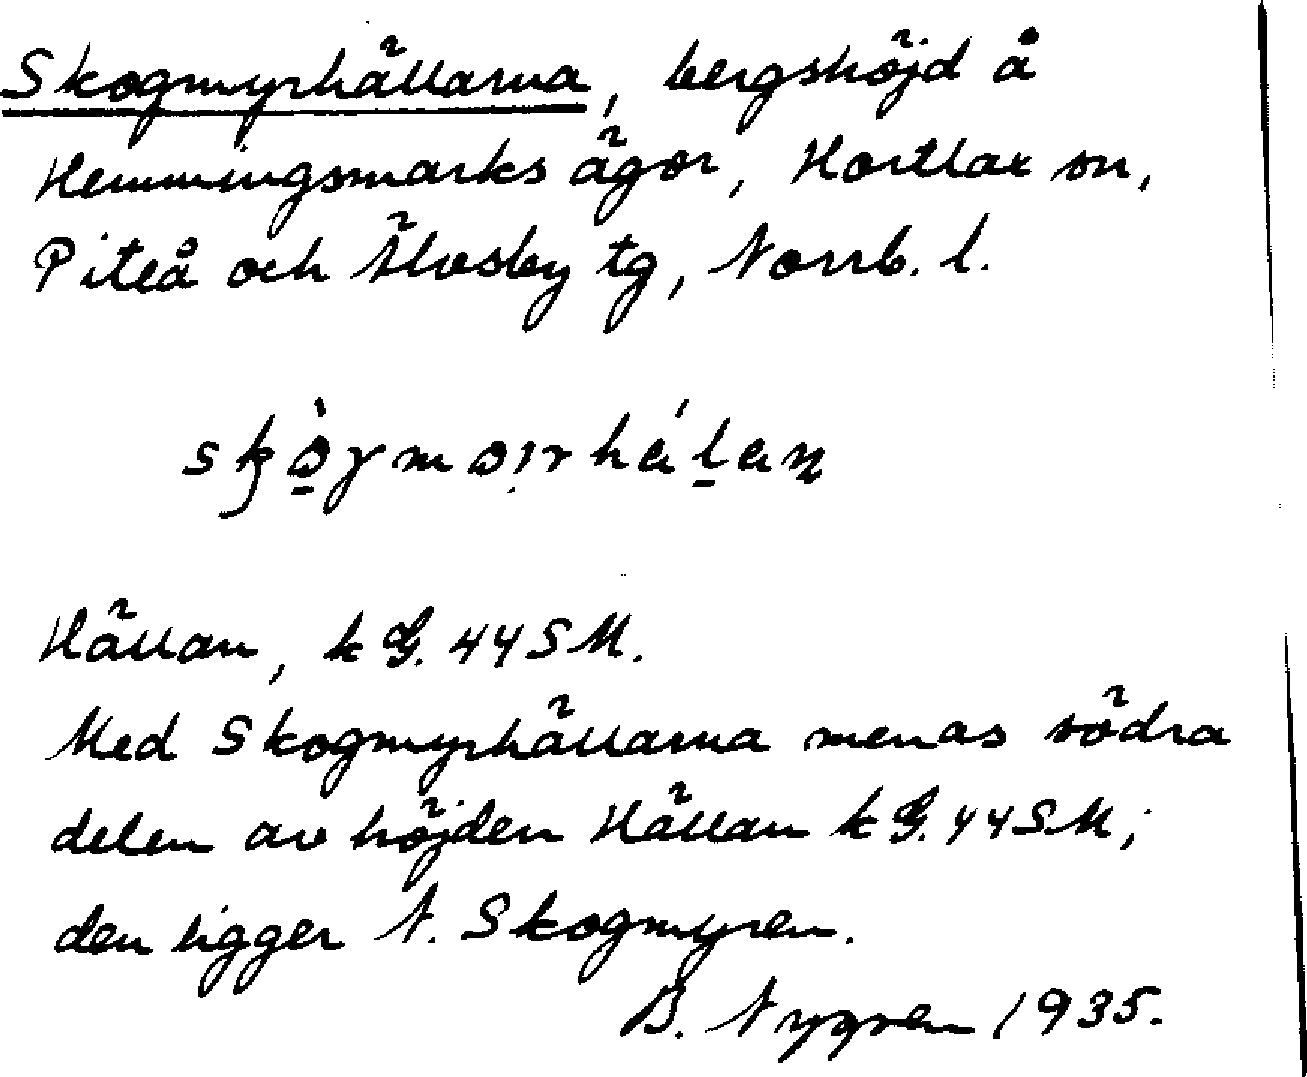 Skogmyrhällarna, bergshöjd å
Hemmingsmarks ägor, Hortlax sn,
Piteå och Älvsby tg, Norrb. l.
Hällan, k G. 44 SM.
Med Skogmyrhällarna menas södra
delen av höjden Hällan k G. 44 SM;
den ligger N. Skogmyren.
B. Nygren 1935.